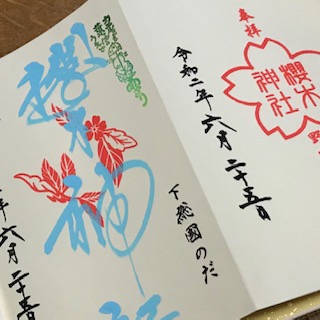 奉拝
櫻木
神社
野
令和二年六月二十五日
下総國のだ
櫻木神社
年六月二十五日